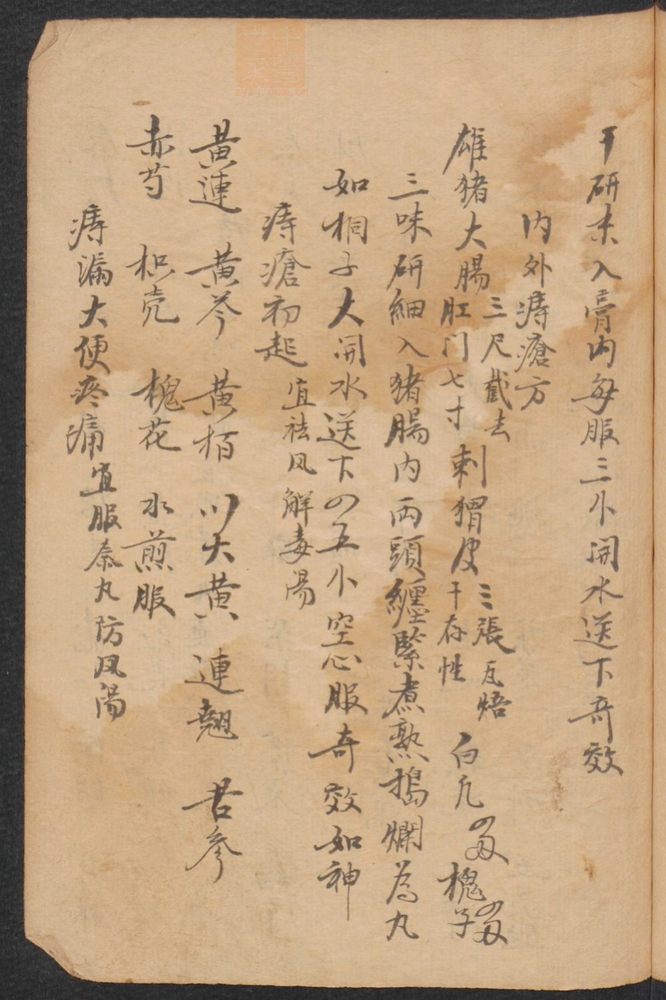 干研末入膏内每服三小開水送下奇效
内外痔瘡方
雄猪大腸三尺截去肛门七寸 刺猬皮三張瓦焙干存性 白凡 槐子
三味研細入猪腸内两頭纏緊煮熟搗爛為丸
如桐子大開水送下四五小空心服奇效如神
痔瘡初起 宜祛风解毒湯
黄連 黄芩 黄栢 川大黄 連翹 苦参
赤芍 枳壳 槐花 水煎服
痔漏大便疼痛 宜服秦丸防风湯